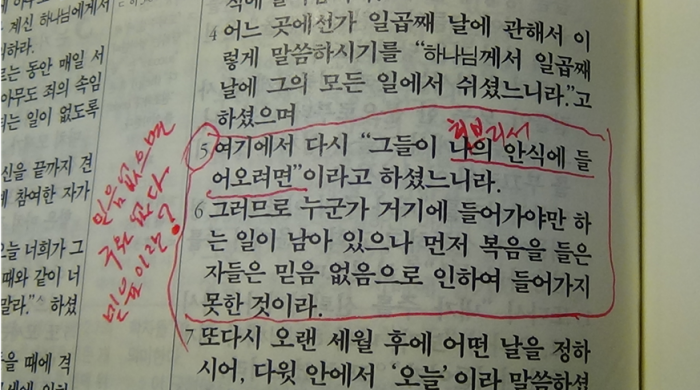 계신 하나님에게서
하라.
르는 동안 매일 서
아무도 죄의 속임
되는 일이 없도록
신을 끝까지 견
께 참여한 자가
오늘 너희가 그
때와 같이 너
말라." 하셨
을 때에 격
4 어느 곳에선가 일곱째 날에 관해서 이
렇게 말씀하시기를 "하나님께서 일곱째
날에 그의 모든 일에서 쉬셨느니라."고
하셨으며
히브리서
5 여기에서 다시 "그들이 나의 안식에 들
어오려면"이라고 하셨느니라.
6 그러므로 누군가 거기에 들어가야만 하
는 일이 남아 있으나 먼저 복음을 들은
자들은 믿음 없음으로 인하여 들어가지
못한 것이라.
7 또다시 오랜 세월 후에 어떤 날을 정하
시어, 다윗 안에서 '오늘'이라 말씀하셨
믿음 없으면
구원 없다
믿음이란?